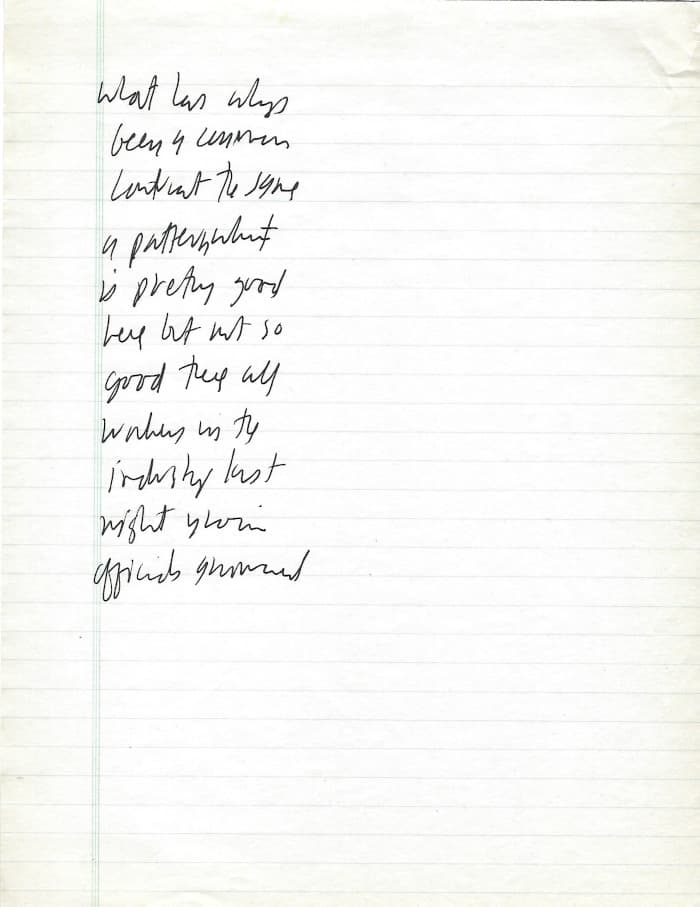 what has always
been a common
contract the same
a pattern what
is pretty good
here but not so
good there all
workers in the
industry last
night union
officials announced